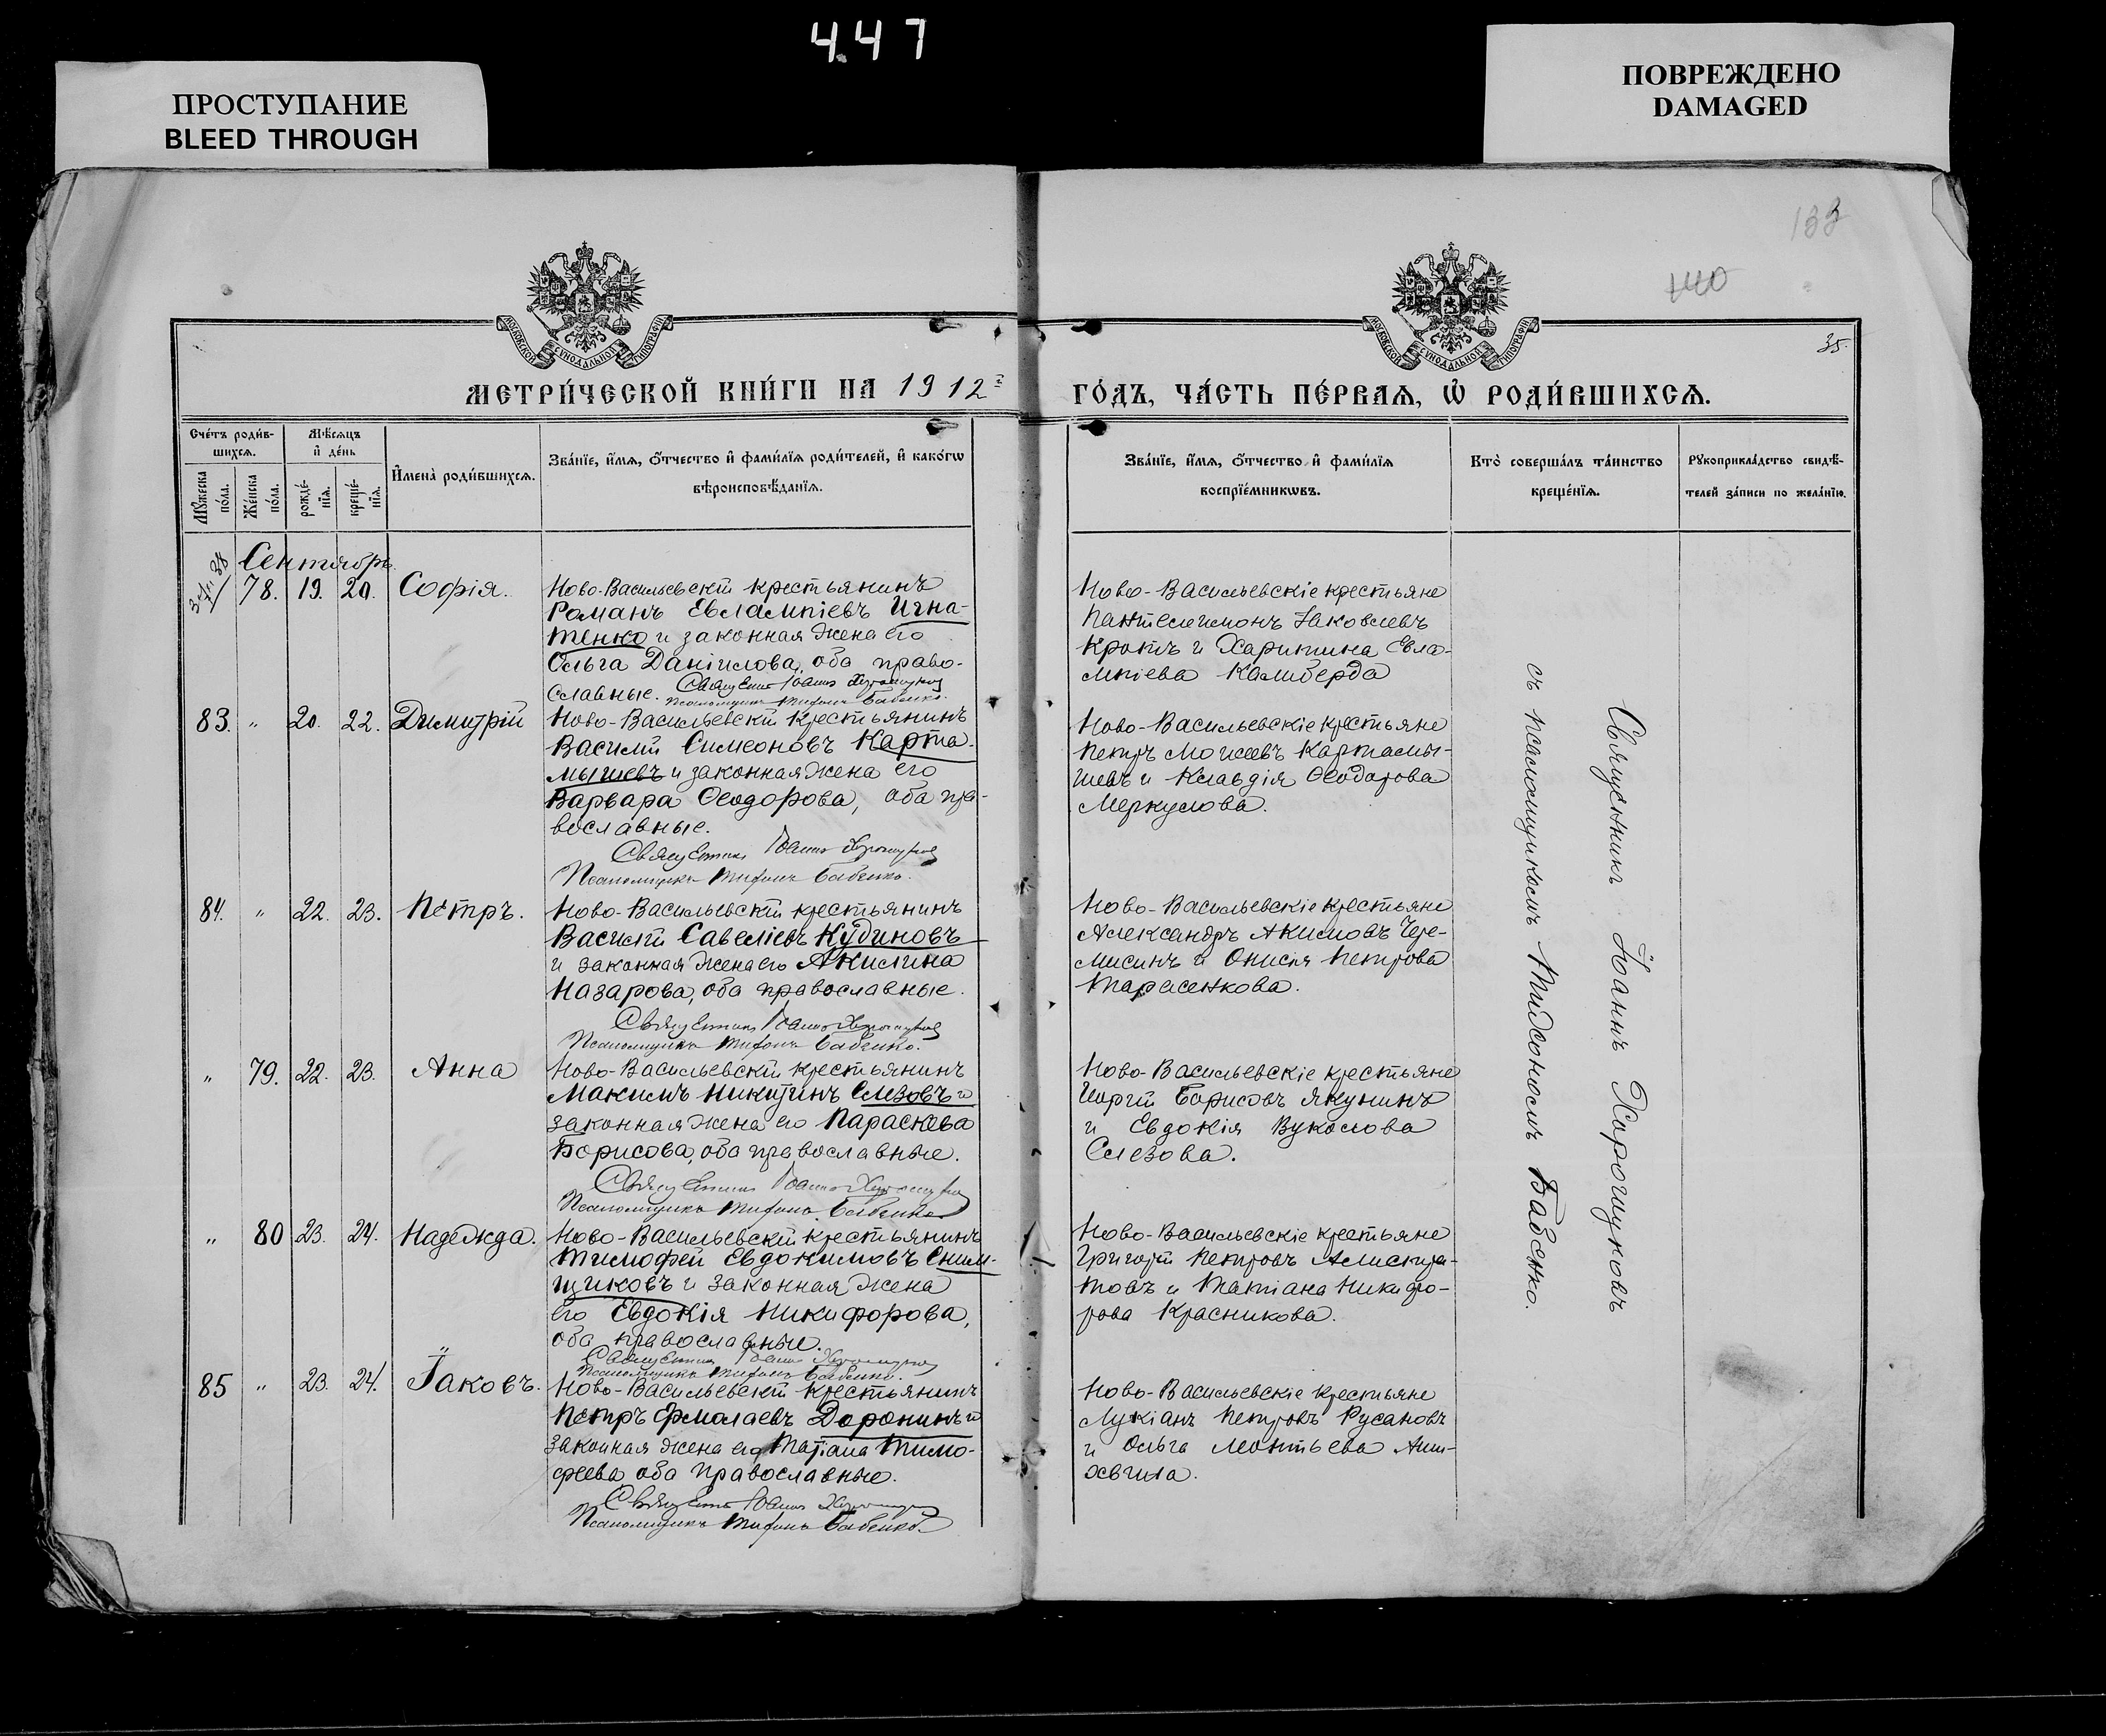 447
ПРОСТУПАНИЕ
BLEED THROUGH
ПОВРЕЖДЕНО
DAMAGED
133
440
35.
МОСКОВСКОЙ СѴНОДАЛЬНОЙ ТИПОГРАФІИ
МОСКОВСКОЙ СѴНОДАЛЬНОЙ ТИПОГРАФІИ
МЕТРИ́ЧЕСКОЙ КНИ́ГИ НА 1912
ГО́ДЪ, ЧА́СТЬ ПЕ́РВАѦ, Ѡ҆ РОДИ́ВШИХСѦ.
Сче́тъ роди́в-
шихсѧ.
Мꙋ́жеска по́ла.
Же́нска по́ла.
Мѣ́сѧцъ
и҆ де́нь
рожде́-
нїѧ.
креще́-
нїѧ.
И҆мена̀ роди́вшихсѧ.
Зва́нїе, и҆́мѧ, ѻ҆́тчество и҆ фами́лїѧ роди́телей, и҆ како́гѡ
вѣроисповѣ́данїѧ.
Зва́нїе, и҆́мѧ, ѻ҆́тчество и҆ фами́лїѧ
воспрїе́мникѡвъ.
Кто̀ соверша́лъ та́инство
креще́нїѧ.
Рꙋкоприкла́дство свидѣ́-
телей за́писи по жела́нїю.
Сентябрь.
78. 19. 20. Софія.
Ново-Васильевскій крестьянинъ
Романъ Евлампіевъ Игна-
тенко и законная жена его
Ольга Даніилова, оба право-
славные. Священникъ Іоаннъ
Псаломщикъ Тихонъ Бабенко.
Ново-Васильевскіе крестьяне
Пантелеимонъ Іаковлевъ
Кротъ и Харитина Евла-
мпіева Калиберда
83. " 20. 22. Димитрій
Ново-Васильевскій крестьянинъ
Василій Симеоновъ Карта-
мышевъ и законная жена его
Варвара Ѳеодорова, оба пра-
вославные.
Священникъ Іоаннъ
Псаломщикъ Тихонъ Бабенко.
Ново-Васильевскіе крестьяне
Петръ Моисеевъ Картамы-
шевъ и Клавдія Ѳеодорова
Меркулова.
84. " 22. 23. Петръ.
Ново-Васильевскій крестьянинъ
Василій Савеліевъ Кудиновъ
и законная жена его Акилина
Назарова, оба православные.
Священникъ Іоаннъ
Псаломщикъ Тихонъ Бабенко.
Ново-Васильевскіе крестьяне
Александръ Акимовъ Чере-
мисинъ и Онисія Петрова
Тарасенкова.
" 79. 22. 23. Анна
Ново-Васильевскій крестьянинъ
Максимъ Никитинъ Слезовъ и
законная жена его Параскева
Борисова, оба православные.
Священникъ Іоаннъ
Псаломщикъ Тихонъ Бабенко
Ново-Васильевскіе крестьяне
Георгій Борисовъ Якунинъ
и Евдокія Вуколова
Слезова.
" 80 23. 24. Надежда.
Ново-Васильевскій крестьянинъ
Тимофей Евдокимовъ Сним-
щиковъ и законная жена
его Евдокія Никифорова,
оба православные.
Священникъ Іоаннъ
Псаломщикъ Тихонъ Бабенко.
Ново-Васильевскіе крестьяне
Григорій Петровъ
и Татіана Никифо-
рова Красникова.
85 " 23. 24. Іаковъ.
Ново-Васильевскій крестьянинъ
Петръ Доронинъ и
законная жена его Татіана Тимо-
феева оба православные.
Священникъ Іоаннъ
Псаломщикъ Тихонъ Бабенко.
Ново-Васильевскіе крестьяне
Лукіанъ Петровъ Русановъ
и Ольга Леонтьева
Священникъ Іоаннъ
съ псаломщикомъ Тихономъ Бабенко.